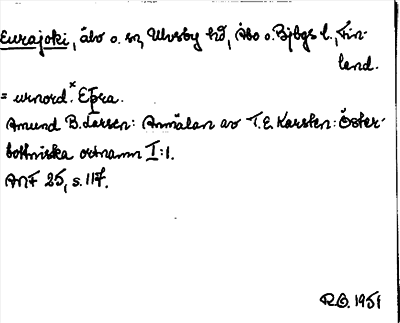 Eurajoki, älv o. sn, Ulvsby hd, Åbo o. Bjbgs l., Fin-
land.
= urnord. *Eþra.
Amund B. Larsen: Anmälan av T.E. Karsten: Öster-
bottniska ortnamn I:1.
ANF 25, s. 117.
R.O. 1951